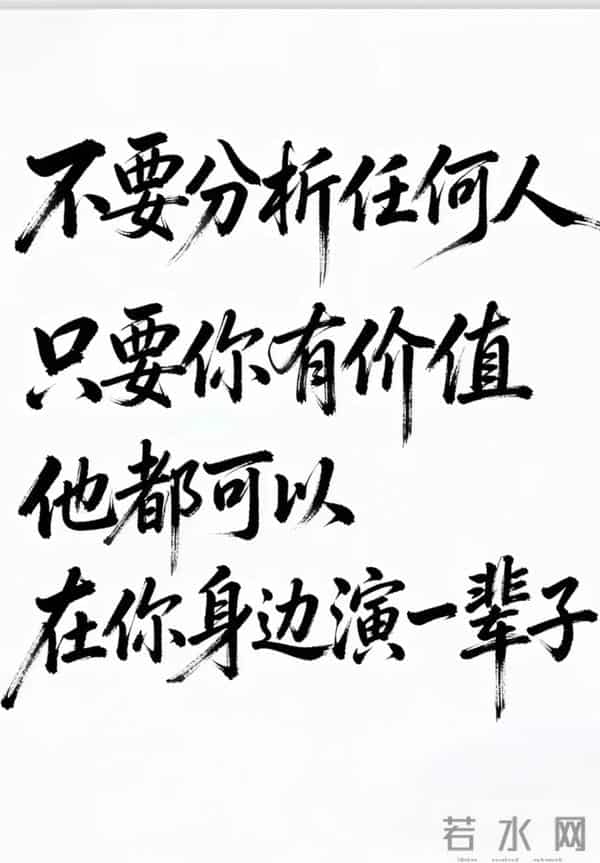 不要分析任何人
只要你有价值
他都可以
在你身边演一辈子
若水网